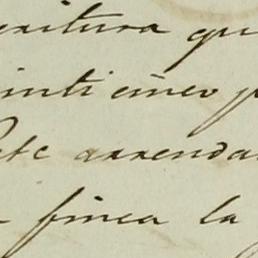 critura qu
inti cinco p
ste arrenda
finca la